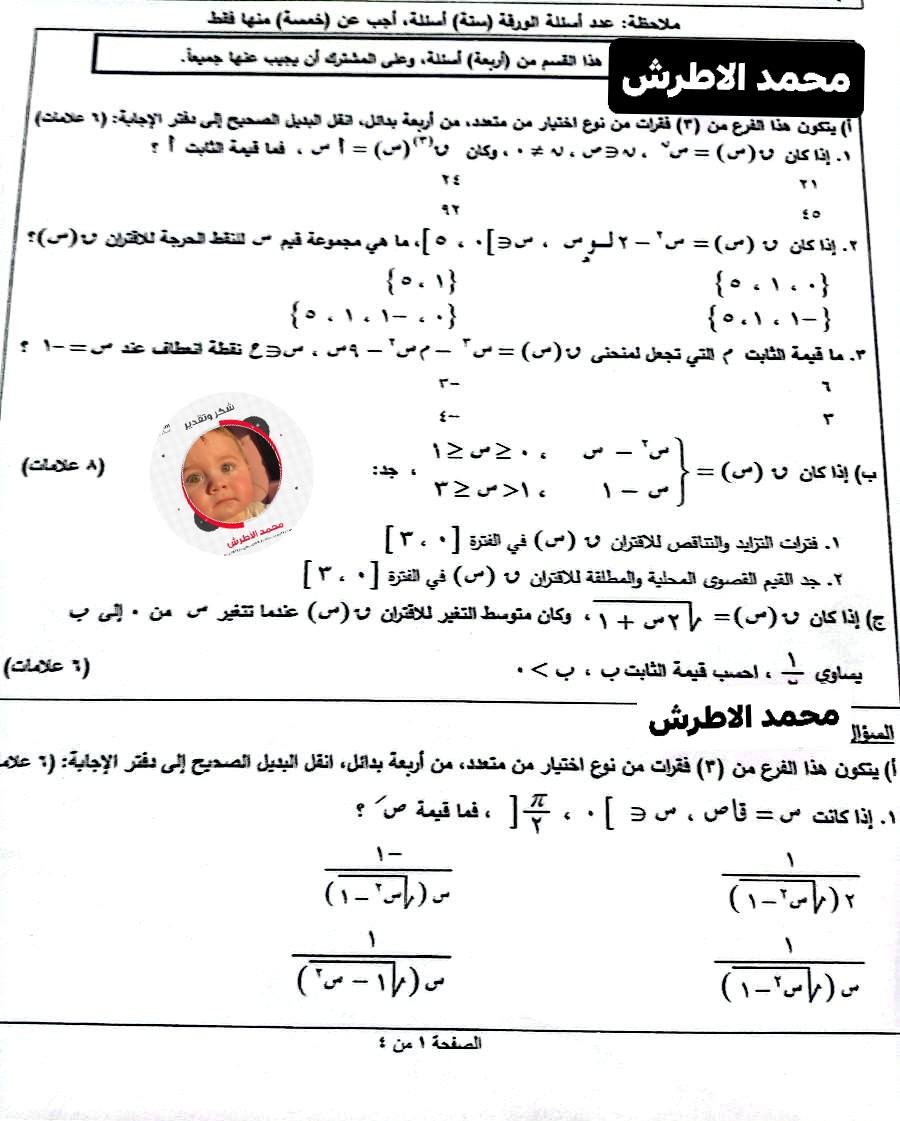 ملاحظة: عدد أسئلة الورقة (ستة) أسئلة، أجب عن (خمسة) منها فقط
هذا القسم من (أربعة) أسئلة، وعلى المشترك أن يجيب عنها جميعاً.
محمد الاطرش
أ) يتكون هذا الفرع من (٣) فقرات من نوع اختيار من متعدد، من أربعة بدائل، انقل البديل الصحيح إلى دفتر الإجابة: (٦ علامات)
١. إذا كان ق(س) = س^ن ، ن∋ص ، ن ≠ ٠ ، وكان ق^(٣)(س) = أ س ، فما قيمة الثابت أ ؟
٢١ ٢٤
٤٥ ٩٢
٢. إذا كان ق(س) = س^٢ – ٢ لــو_هـ س ، س∋]٠ ، ٥]، ما هي مجموعة قيم س للنقط الحرجة للاقتران ق(س)؟
{٠ ، ١ ، ٥} {١ ، ٥}
{-١ ، ١ ، ٥} {٠ ، -١ ، ١ ، ٥}
٣. ما قيمة الثابت م التي تجعل لمنحنى ق(س) = س^٣ – م س^٢ – ٩س ، س∋ح نقطة انعطاف عند س = -١ ؟
٦ -٣
٣ -٤
شكر وتقدير
محمد الأطرش
ب) إذا كان ق(س) = { س^٢ – س ، ٠ ≤ س ≤ ١ ، جد: (٨ علامات)
س – ١ ، ١ < س ≤ ٣
١. فترات التزايد والتناقص للاقتران ق(س) في الفترة [٠ ، ٣]
٢. جد القيم القصوى المحلية والمطلقة للاقتران ق(س) في الفترة [٠ ، ٣]
ج) إذا كان ق(س) = √(٢س + ١) ، وكان متوسط التغير للاقتران ق(س) عندما تتغير س من ٠ إلى ب
يساوي ١ ، احسب قيمة الثابت ب ، ب > ٠ (٦ علامات)
السؤال
محمد الاطرش
أ) يتكون هذا الفرع من (٣) فقرات من نوع اختيار من متعدد، من أربعة بدائل، انقل البديل الصحيح إلى دفتر الإجابة: (٦ علا
١. إذا كانت س = قاص ، س ∋ ]٠ ، π/٢[ ، فما قيمة صَ ؟
١/(٢(√(س^٢-١))) -١/(س(√(س^٢-١)))
١/(س(√(س^٢-١))) ١/(س(√(١ – س^٢)))
الصفحة ١ من ٤